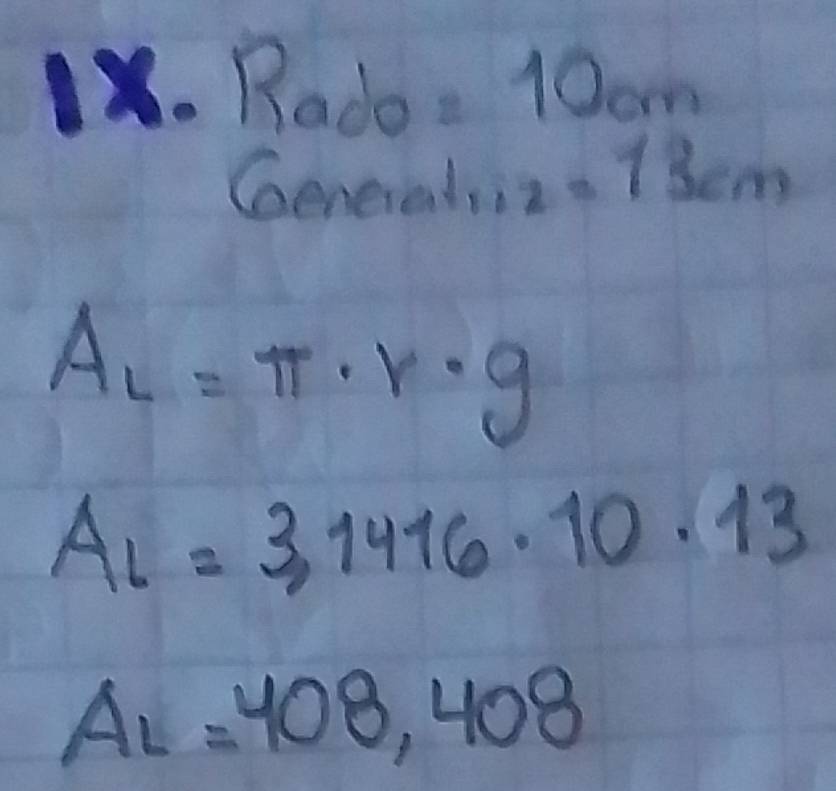 IX. Rado = 10cm
Generatriz = 13cm
AL = π · r · g
AL = 3,1416 · 10 · 13
AL = 408,408